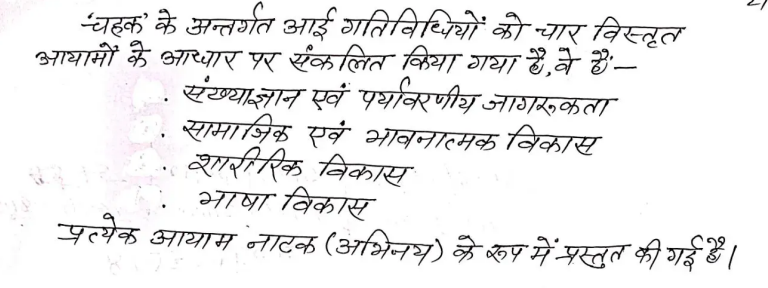 'चहक' के अन्तर्गत आई गतिविधियों को चार विस्तृत
आयामों के आधार पर संकलित किया गया है, वे हैं –
. संख्याज्ञान एवं पर्यावरणीय जागरूकता
. सामाजिक एवं भावनात्मक विकास
. शारीरिक विकास
. भाषा विकास
प्रत्येक आयाम नाटक (अभिनय) के रूप में प्रस्तुत की गई है।